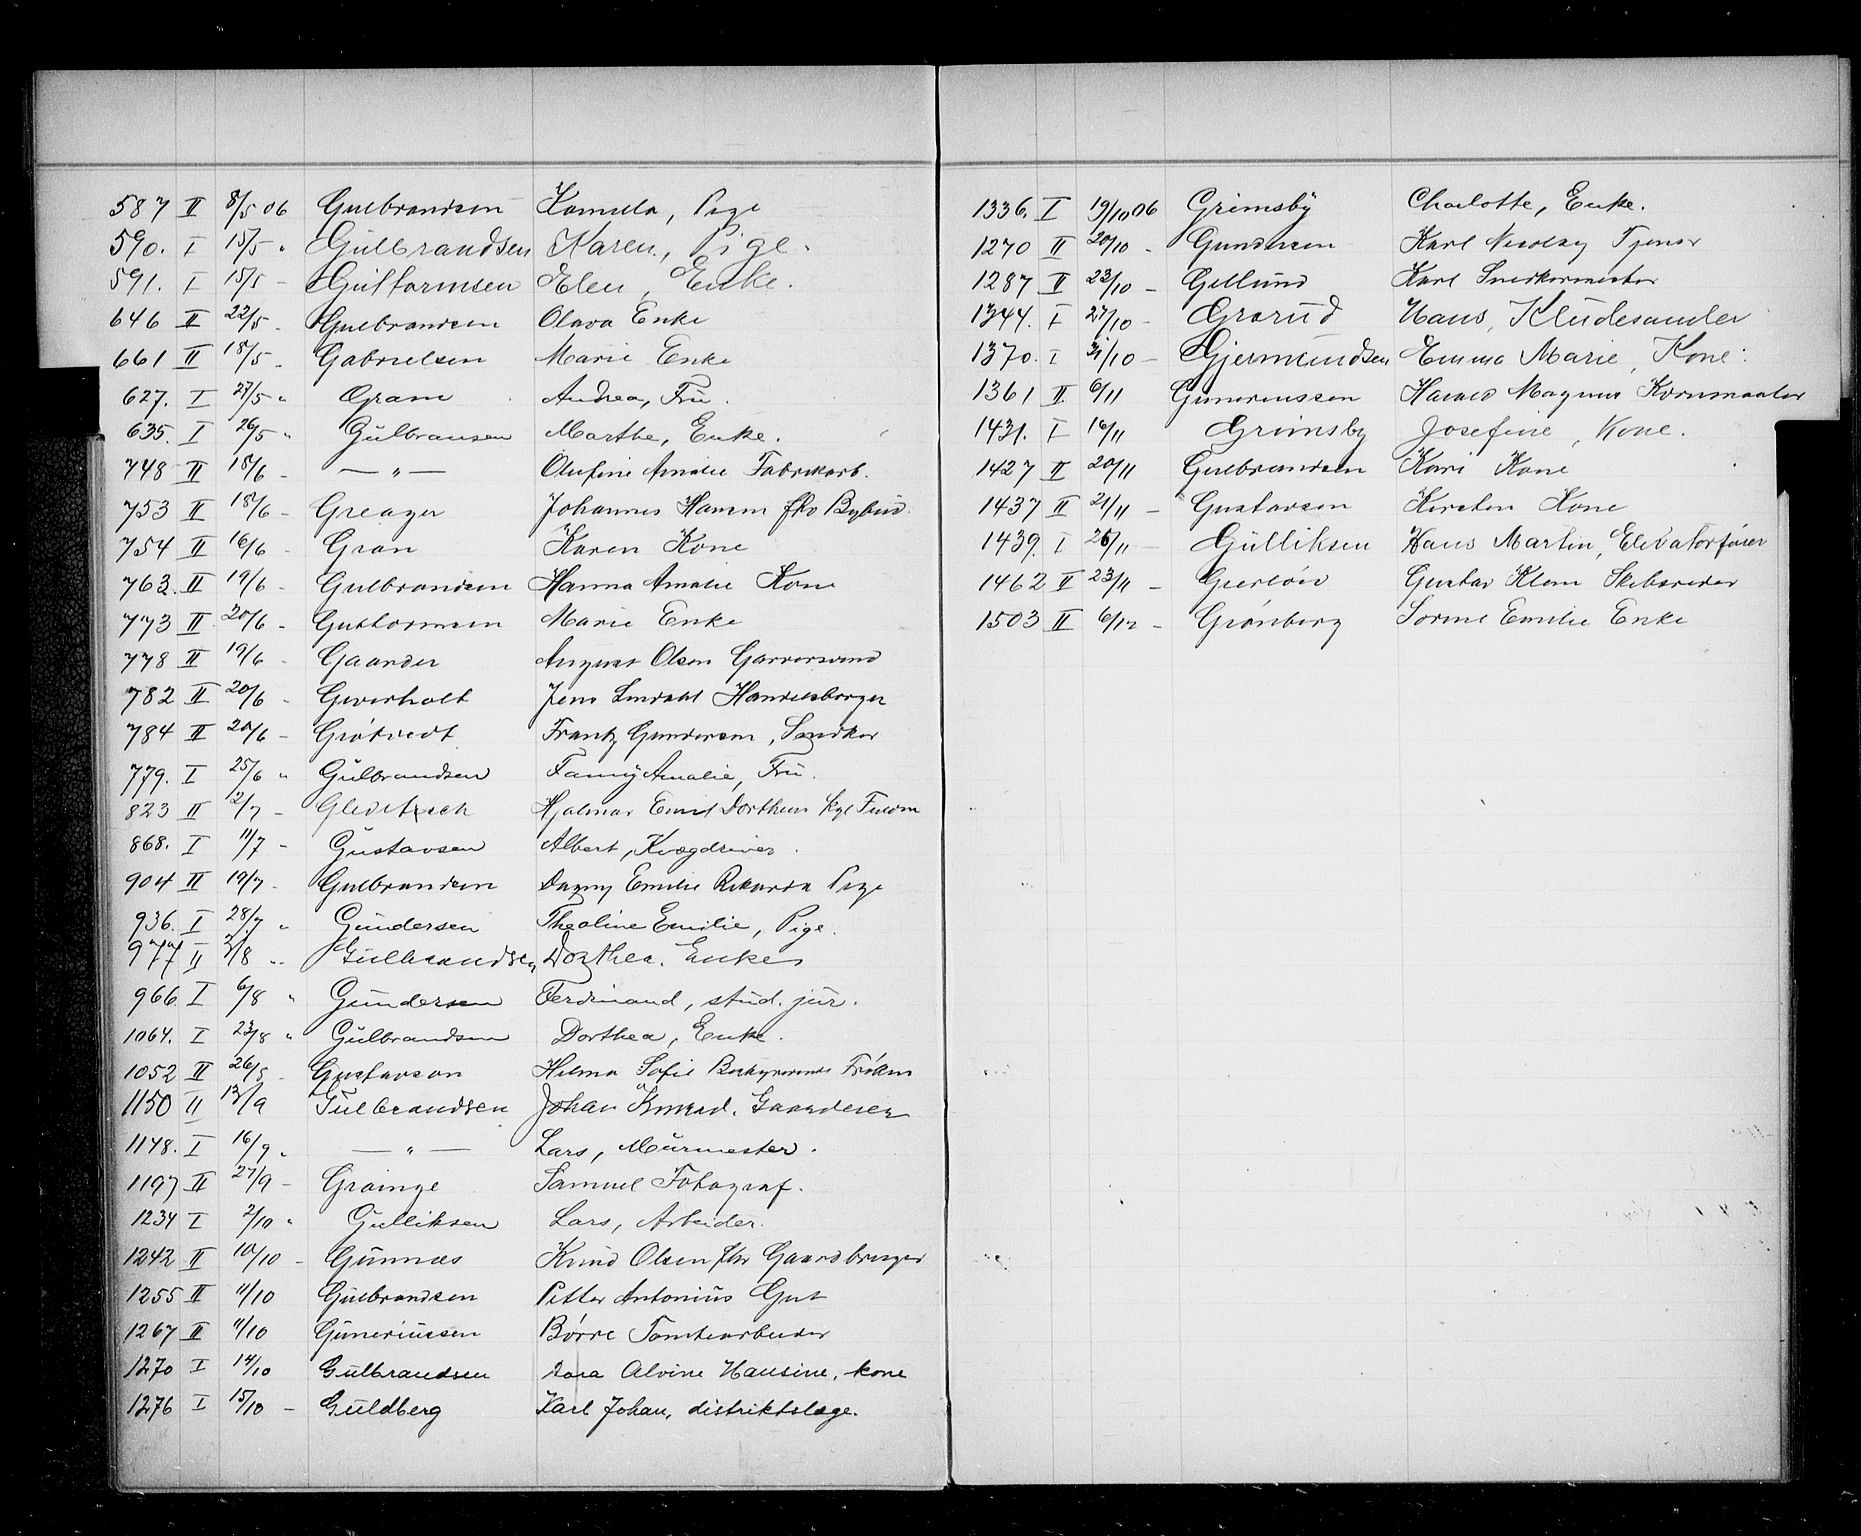 587 II 8/5 06 Gulbrandsen Kamilla, Pige
590. I 15/5 " Gulbrandsen Karen, Pige.
591. I 15/5 - Guttormsen Elen, Enke.
646 II 22/5 - Gulbrandsen Olava Enke
661 II 18/5 - Gabrielsen Marie Enke
627. I 27/5 " Gram Andrea, Fru.
635. I 26/5 " Gulbransen Marthe, Enke.
748 II 18/6 - — " — Olufine Amalie Fabrikarb.
753 II 18/6 - Greager Johannes Hansen fhv Bybud.
754 II 16/6 - Gran Karen Kone
763. II 19/6 - Gulbrandsen Hanna Amalie Kone
773 II 20/6 - Guttormsen Marie Enke
778 II 19/6 - Gaarder August Olsen Garversvend
782 II 20/6 - Geverholt Jens Lindahl Handelsborger
784 II 20/6 - Grøtvedt Frantz Gundersen, Snedker
779. I 25/6 " Gulbrandsen Fanny Amalie, Fru.
823 II 12/7 - Gleditsch Hjalmar Emil Dorthens
868. I 11/7 - Gustavsen Albert, Kvægdriver.
904 II 19/7 - Gulbrandsen Dagny Emilie Rikarda Pige
936. I 28/7 " Gundersen Thealine Emilie, Pige.
977 II 2/8 " Gulbrandsen Dorthea. Enke
966. I 6/8 " Gundersen Ferdinand, stud. jur.
1064. I 23/8 " Gulbrandsen Dorthea, Enke.
1052 II 26/8 - Gustavson Hilma Sofie Frøken
1150 II 13/9 Gulbrandsen Johan Konrad. Gaardeier
1148. I 16/9 " — " — Lars, Murmester.
1197 II 27/9 - Grainge Samuel Fotograf.
1234 I 2/10 " Gulliksen Lars, Arbeider.
1242 II 10/10 - Gunnæs Knud Olsen fhv Gaardbruger
1255 II 11/10 Gulbrandsen Petter Antonius Gut
1267 II 11/10 Guneriussen Børre Tomtearbeider
1270 I 14/10 Gulbrandsen Dora Alvine Hansine, kone
1276 I 15/10 - Guldberg Karl Johan, distriktslæge.
1336. I 19/10 06 Grimsby Charlotte, Enke.
1270 II 20/10 - Gundersen Karl Nicolay Tjener
1287 II 23/10 - Gellund Karl Snedkermester
1344. I 27/10 - Grorud Hans, Kludesamler
1370. I 31/10 - Gjermundsen Emma Marie, Kone.
1361 II 6/11 Guneriussen Harald Magnus Kornmaaler
1431. I 16/11 Grimsby Josefine, Kone.
1427 II 20/11 Gulbrandsen Kari Kone
1437 II 21/11 - Gustavsen Kirsten Kone
1439. I 26/11 - Gulliksen Hans Martin, Elevatorfører
1462 II 23/11 - Gierløv Gustav Klem Skibsreder
1503 II 6/12 - Grønberg Sorine Emilie Enke